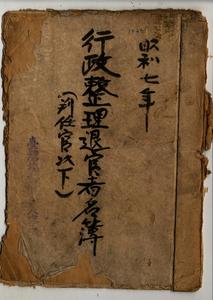 昭和七年
行政整理退官者名簿
(判任官以下)